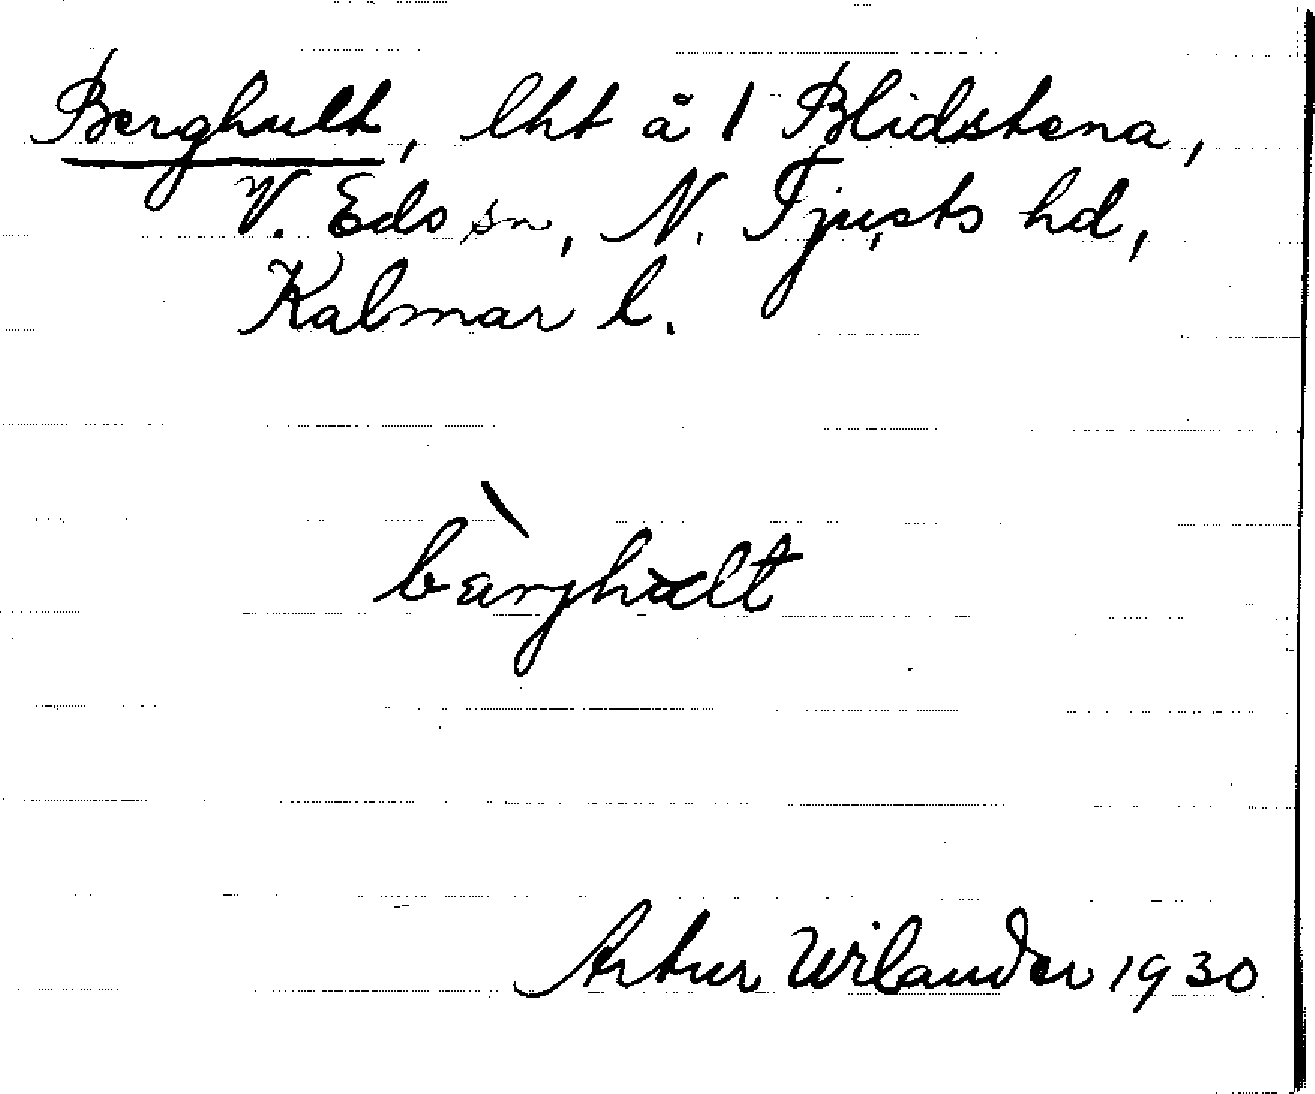 Berghult, lht å 1 Blidstena,
V. Eds sn, N. Tjusts hd,
Kalmar l.
Artur Wilander 1930